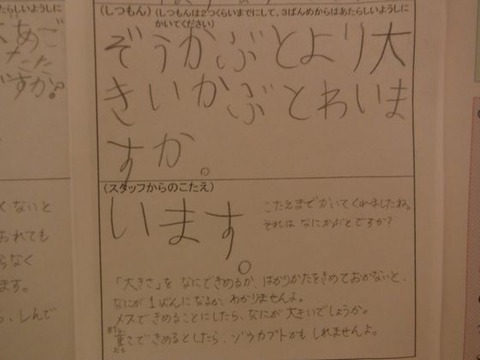 (しつもん)(しつもんは2つくらいまでにして、3ばんめからはあたらしいようしに
かいてください)
ぞうかぶとより大
きいかぶとわいま
すか。
(スタッフからのこたえ)
います。
こたえまでかいてくれましたね。
それは なにかぶとですか?
「大きさ」を なにできめるか、はかりかたをきめておかないと、
なにが1ばんになるか、わかりませんよ。
メスできめることにしたら、なにが大きいでしょうか。
重さできめるとしたら、ゾウカブトかもしれませんよ。
たらしいようしに
あご
すか?
くないと
おれても
らなく
ます。
ら、しんで